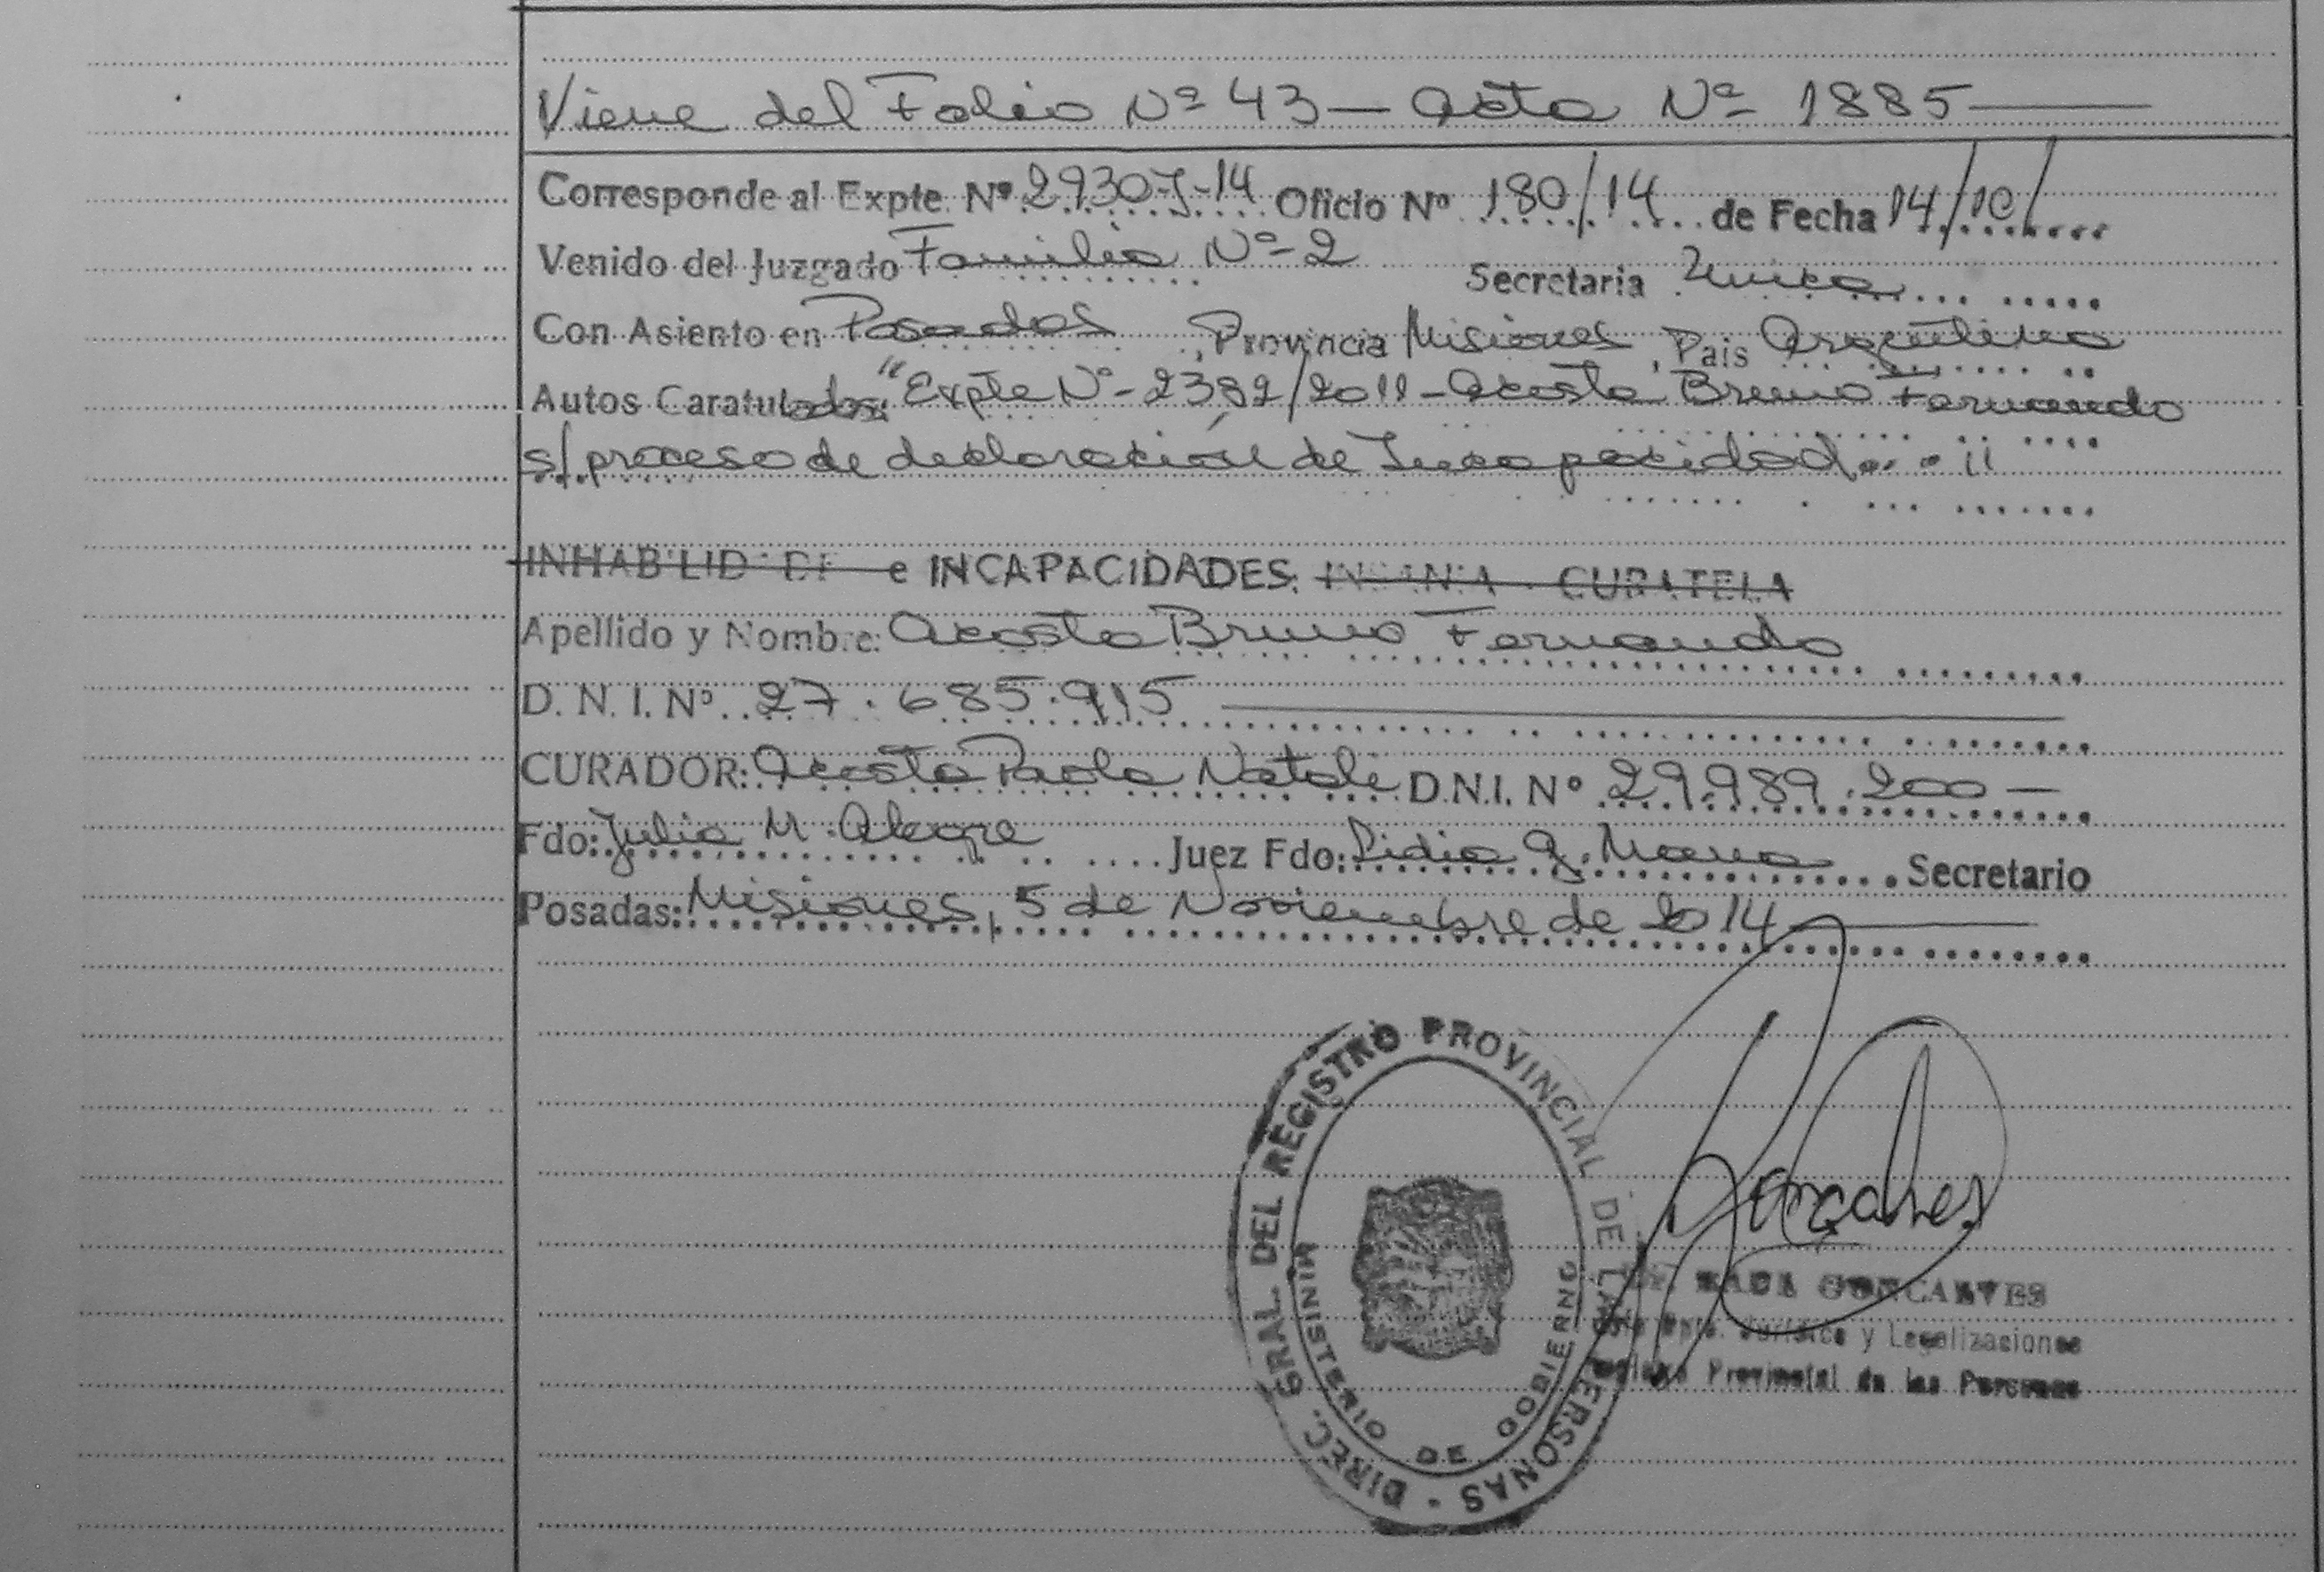 Viene del Folio Nº 43 — Acta Nº 1885
Corresponde al Expte. Nº 29307-J-14 Oficio Nº 180/14 de Fecha 14/10/
Venido del Juzgado Familia Nº 2 Secretaria Unica
Con Asiento en Posadas, Provincia Misiones, Pais Argentina
Autos Caratulados: "Expte Nº 2382/2011 - Acosta Bruno Fernando
s/ proceso de declaración de Incapacidad"
INHABILID DE e INCAPACIDADES. INSANIA - CURATELA
Apellido y Nombre: Acosta Bruno Fernando
D. N. I. Nº 27.685.915
CURADOR: Acosta Paola Natali D.N.I. Nº 29.989.200 —
Fdo: Julia M. Alegre Juez Fdo: Lidia G. Secretario
Posadas: Misiones, 5 de Noviembre de 2014
DIREC. GRAL. DEL REGISTRO PROVINCIAL DE LAS PERSONAS -
MINISTERIO DE GOBIERNO
Goncalves
SARA GONCALVES
Dpto. Jurídica y Legalizaciones
Provincial de las Personas